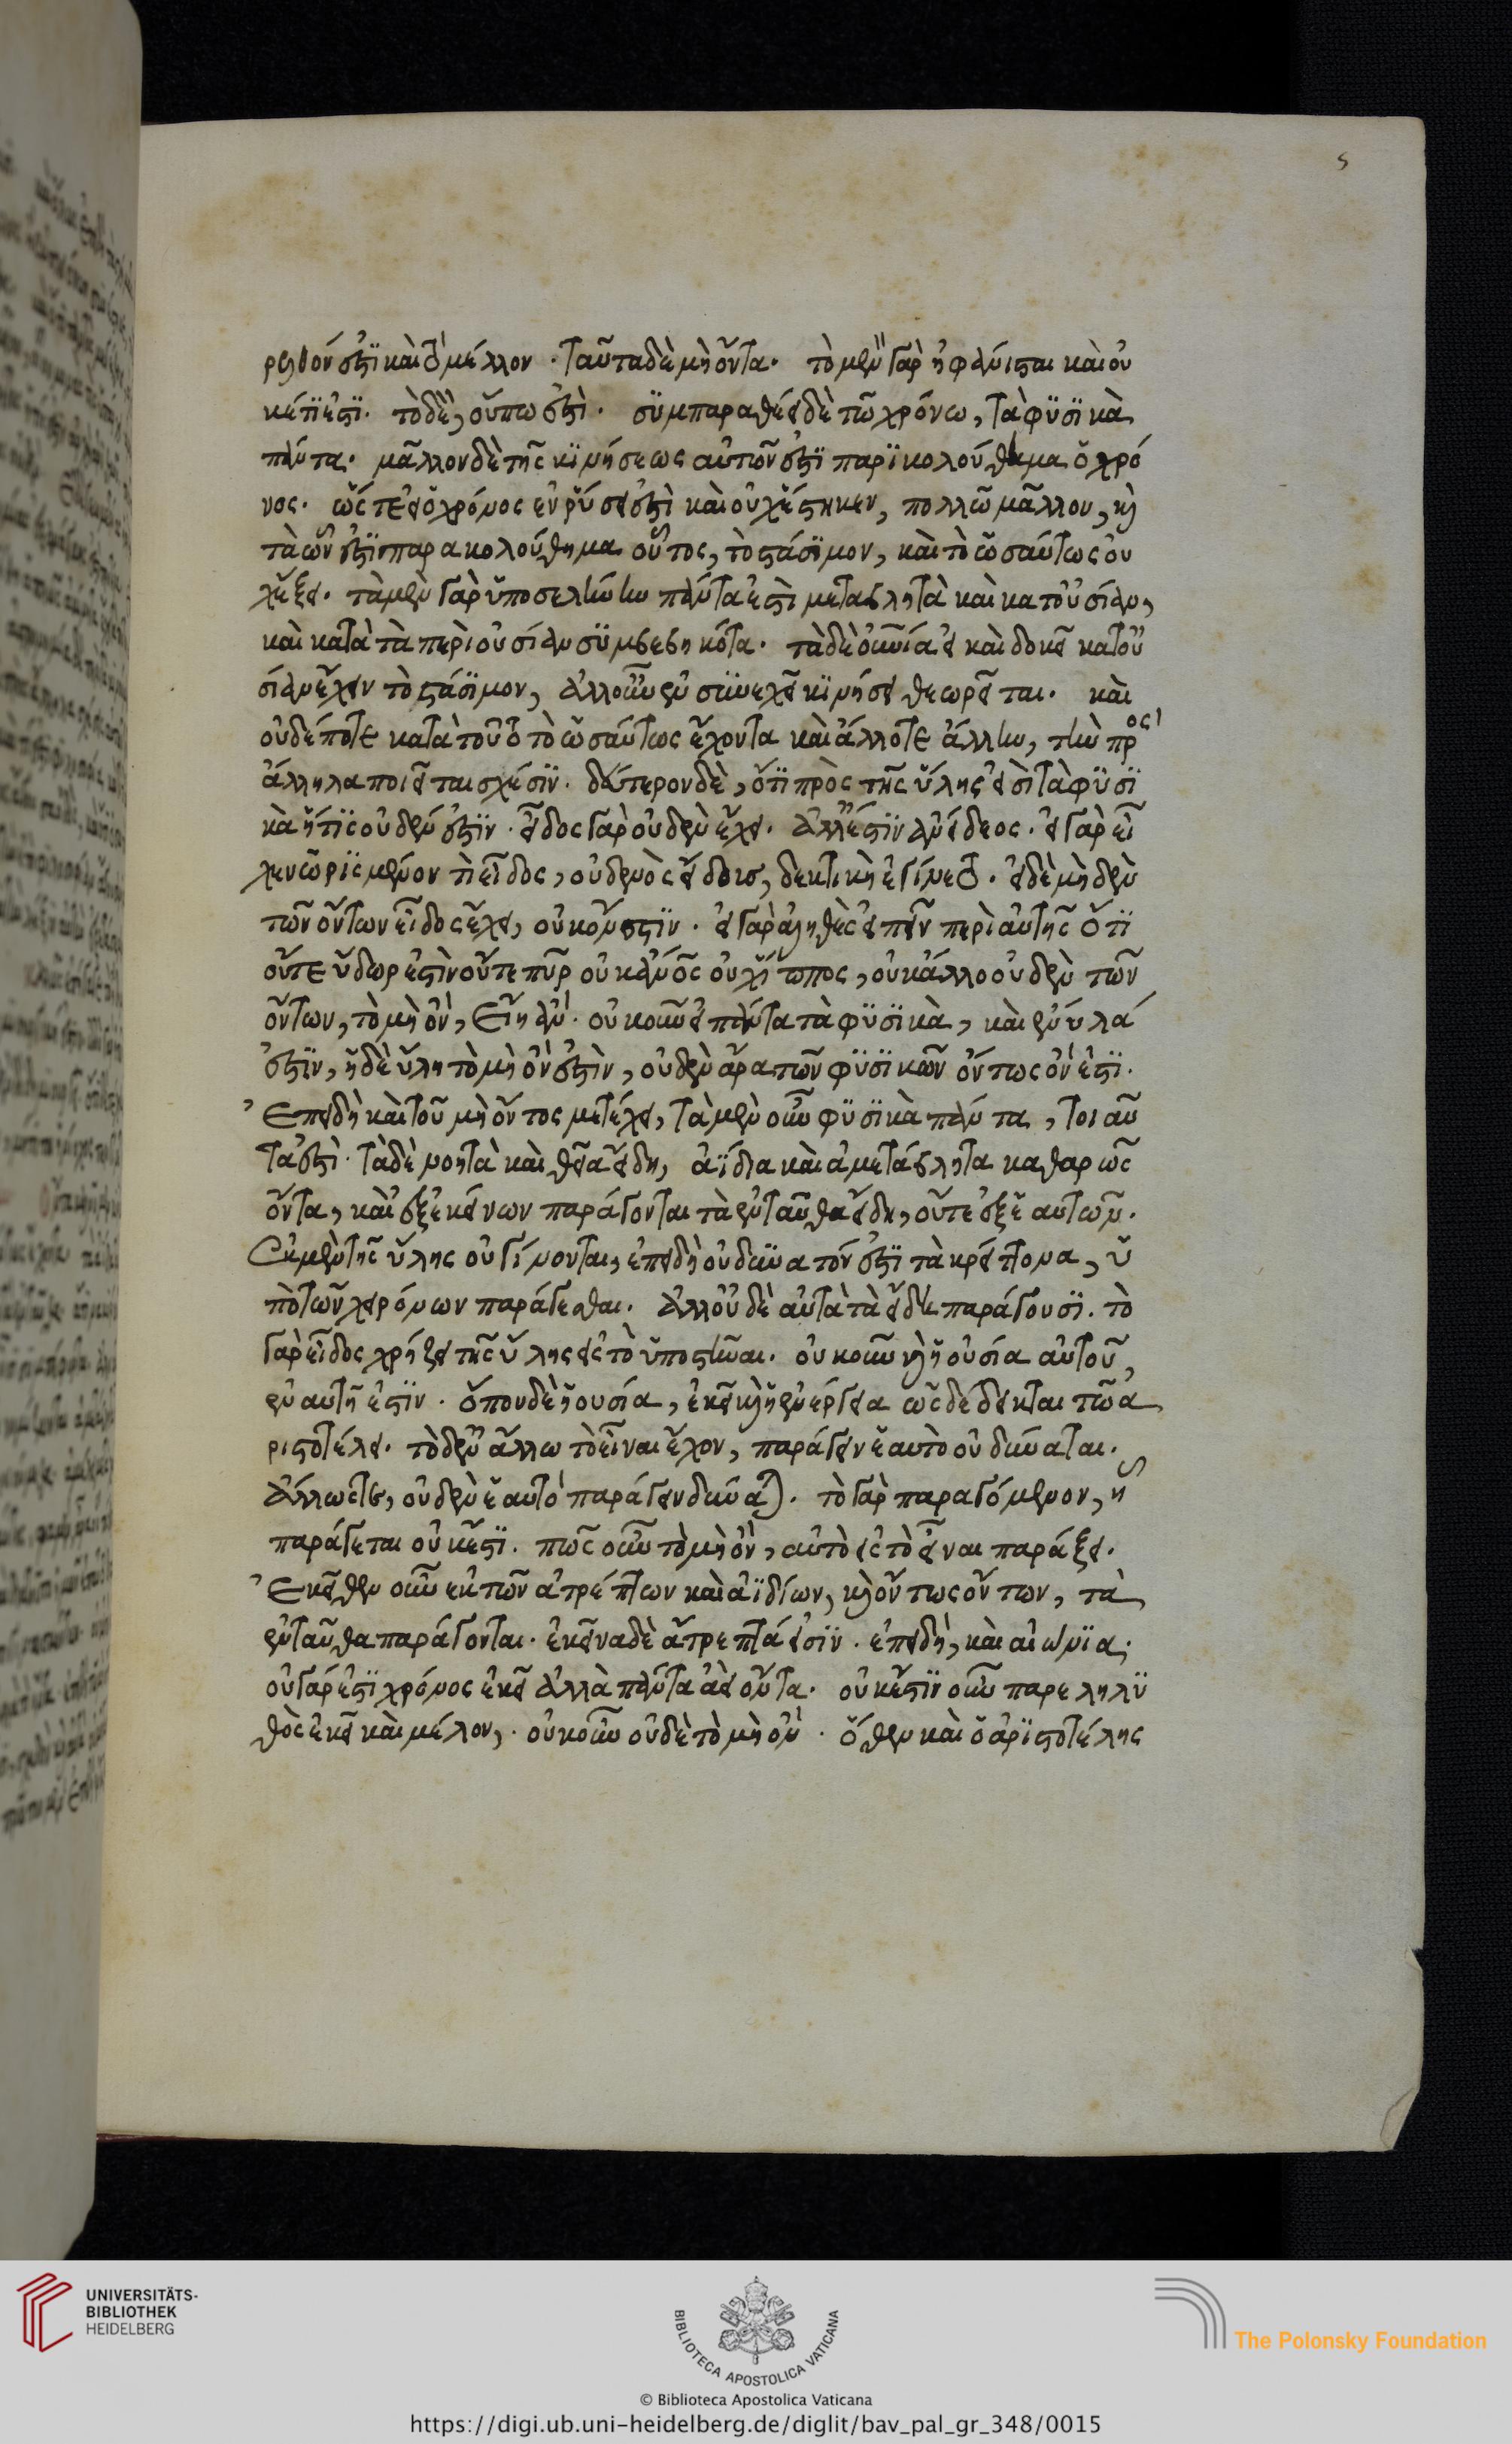 5
ρελθόν ἐστι καὶ τὸ μέλλον · ταῦτα δὲ μὴ ὄντα · τὸ μὲν γὰρ ἠφάνισται καὶ οὐ
κέτι ἐστι · τὸ δὲ, οὔπω ἐστὶ · συμπαραθεῖ δὲ τῶ χρόνω, τὰ φυσικὰ
πάντα · μᾶλλον δὲ τῆς κινήσεως αὐτῶν ἐστι παρικολούθημα ὁ χρό
νος · ὥστε εἰ ὁ χρόνος ἐν ῥύσει ἐστὶ καὶ οὐχ ἕστηκεν, πολλῶ μᾶλλον, καὶ
τὰ ὧν ἐστι παρακολούθημα οὗτος, τὸ στάσιμον, καὶ τὸ ὡσαύτως οὐ
χ ἕξει · τὰ μὲν γὰρ ὑπὸ σελήνην πάντα ἐστὶ μεταβλητὰ καὶ κατ οὐσίαν,
καὶ κατὰ τὰ περὶ οὐσίαν συμβεβηκότα · τὰ δὲ οὐράνια εἰ καὶ δοκεῖ κατ οὐ
σίαν ἔχειν τὸ στάσιμον, ἀλλ οὖν ἐν συνεχεῖ κινήσει θεωρεῖται · καὶ
οὐδέποτε κατὰ τοῦτο τὸ ὡσαύτως ἔχοντα καὶ ἄλλοτε ἄλλην, τὴν πρὸς
ἄλληλα ποιεῖται σχέσιν · δεύτερον δὲ, ὅτι πρὸς τῆς ὕλης εἰσὶ τὰ φυσι
κὰ ἥτις οὐδέν ἐστιν · εἶδος γὰρ οὐδὲν ἔχει · ἀλλ ἔστιν ἀνείδεος · εἰ γὰρ εἶ
χεν ὡρισμένον τὶ εἶδος, οὐδενὸς εἴδους, δεκτικὴ ἐγίνετο · εἰ δὲ μηδὲν
τῶν ὄντων εἶδος ἔχει, οὐκ ὄν ἐστιν · εἰ γὰρ ἀληθὲς εἰπεῖν περὶ αὐτῆς ὅτι
οὔτε ὕδωρ ἐστὶν οὔτε πῦρ οὐκ ἄνος οὐχ ἵππος, οὐκ ἄλλο οὐδὲν τῶν
ὄντων, τὸ μὴ ὂν, εἴη ἂν · οὐκοῦν εἰ πάντα τὰ φυσικὰ, καὶ ἔνυλά
ἐστιν, ἡ δὲ ὕλη τὸ μὴ ὄν ἐστὶν, οὐδὲν ἄρα τῶν φυσικῶν ὄντως ὂν ἐστι ·
Ἐπειδὴ καὶ τοῦ μὴ ὄντος μετέχει, τὰ μὲν οὖν φυσικὰ πάντα, τοιαῦ
τα ἐστὶ · τὰ δὲ νοητὰ καὶ θεῖα εἴδη, ἀΐδια καὶ ἀμετάβλητα καθαρῶς
ὄντα, καὶ ἐξ ἐκείνων παράγονται τὰ ἐνταῦθα εἴδη, οὔτε ἐξ ἑαυτῶν ·
Ἐκ μὲν τῆς ὕλης οὐ γίνονται, ἐπειδὴ οὐ δυνατόν ἐστι τὰ κρείττονα, ὑ
πὸ τῶν χειρόνων παράγεσθαι · Ἀλλ οὐδὲ αὐτὰ τὰ εἴδη παράγουσι · τὸ
γὰρ εἶδος χρήζει τῆς ὕλης εἰς τὸ ὑποστῆναι · οὐκοῦν καὶ ἡ οὐσία αὐτοῦ,
ἐν αὐτῆ ἐστιν · ὅπου δὲ ἡ ουσία, ἐκεῖ καὶ ἡ ἐνέργεια ὡς δέδεικται τῶ ἀ
ριστοτέλει · τὸ δ ἐν ἄλλω τὸ εἶναι ἔχον, παράγειν ἑαυτὸ οὐ δύναται ·
Ἄλλως τε, οὐδὲν ἑαυτὸ παράγειν δύναται · τὸ γὰρ παραγόμενον, ἧς
παράγεται οὐκ ἔστι · πῶς οὖν τὸ μὴ ὂν, αὐτὸ εἰς τὸ εἶναι παράξει ·
Ἐκεῖθεν οὖν ἐκ τῶν ἀτρέπτων καὶ ἀϊδίων, καὶ ὄντως ὄντων, τὰ
ἐνταῦθα παράγονται · ἐκεῖνα δὲ ἄτρεπτά εἰσιν · ἐπειδὴ, καὶ αἰώνια ·
οὐ γάρ ἐστι χρόνος ἐκεῖ ἀλλὰ πάντα ἀεὶ ὄντα · οὐκ ἔστιν οὖν παρεληλυ
θὸς ἐκεῖ καὶ μέλον, · οὐκοῦν οὐδὲ τὸ μὴ ὂν · ὅθεν καὶ ὁ ἀριστοτέλης
UNIVERSITÄTS-
BIBLIOTHEK
HEIDELBERG
BIBLIOTECA APOSTOLICA VATICANA
The Polonsky Foundation
© Biblioteca Apostolica Vaticana
https://digi.ub.uni-heidelberg.de/diglit/bav_pal_gr_348/0015